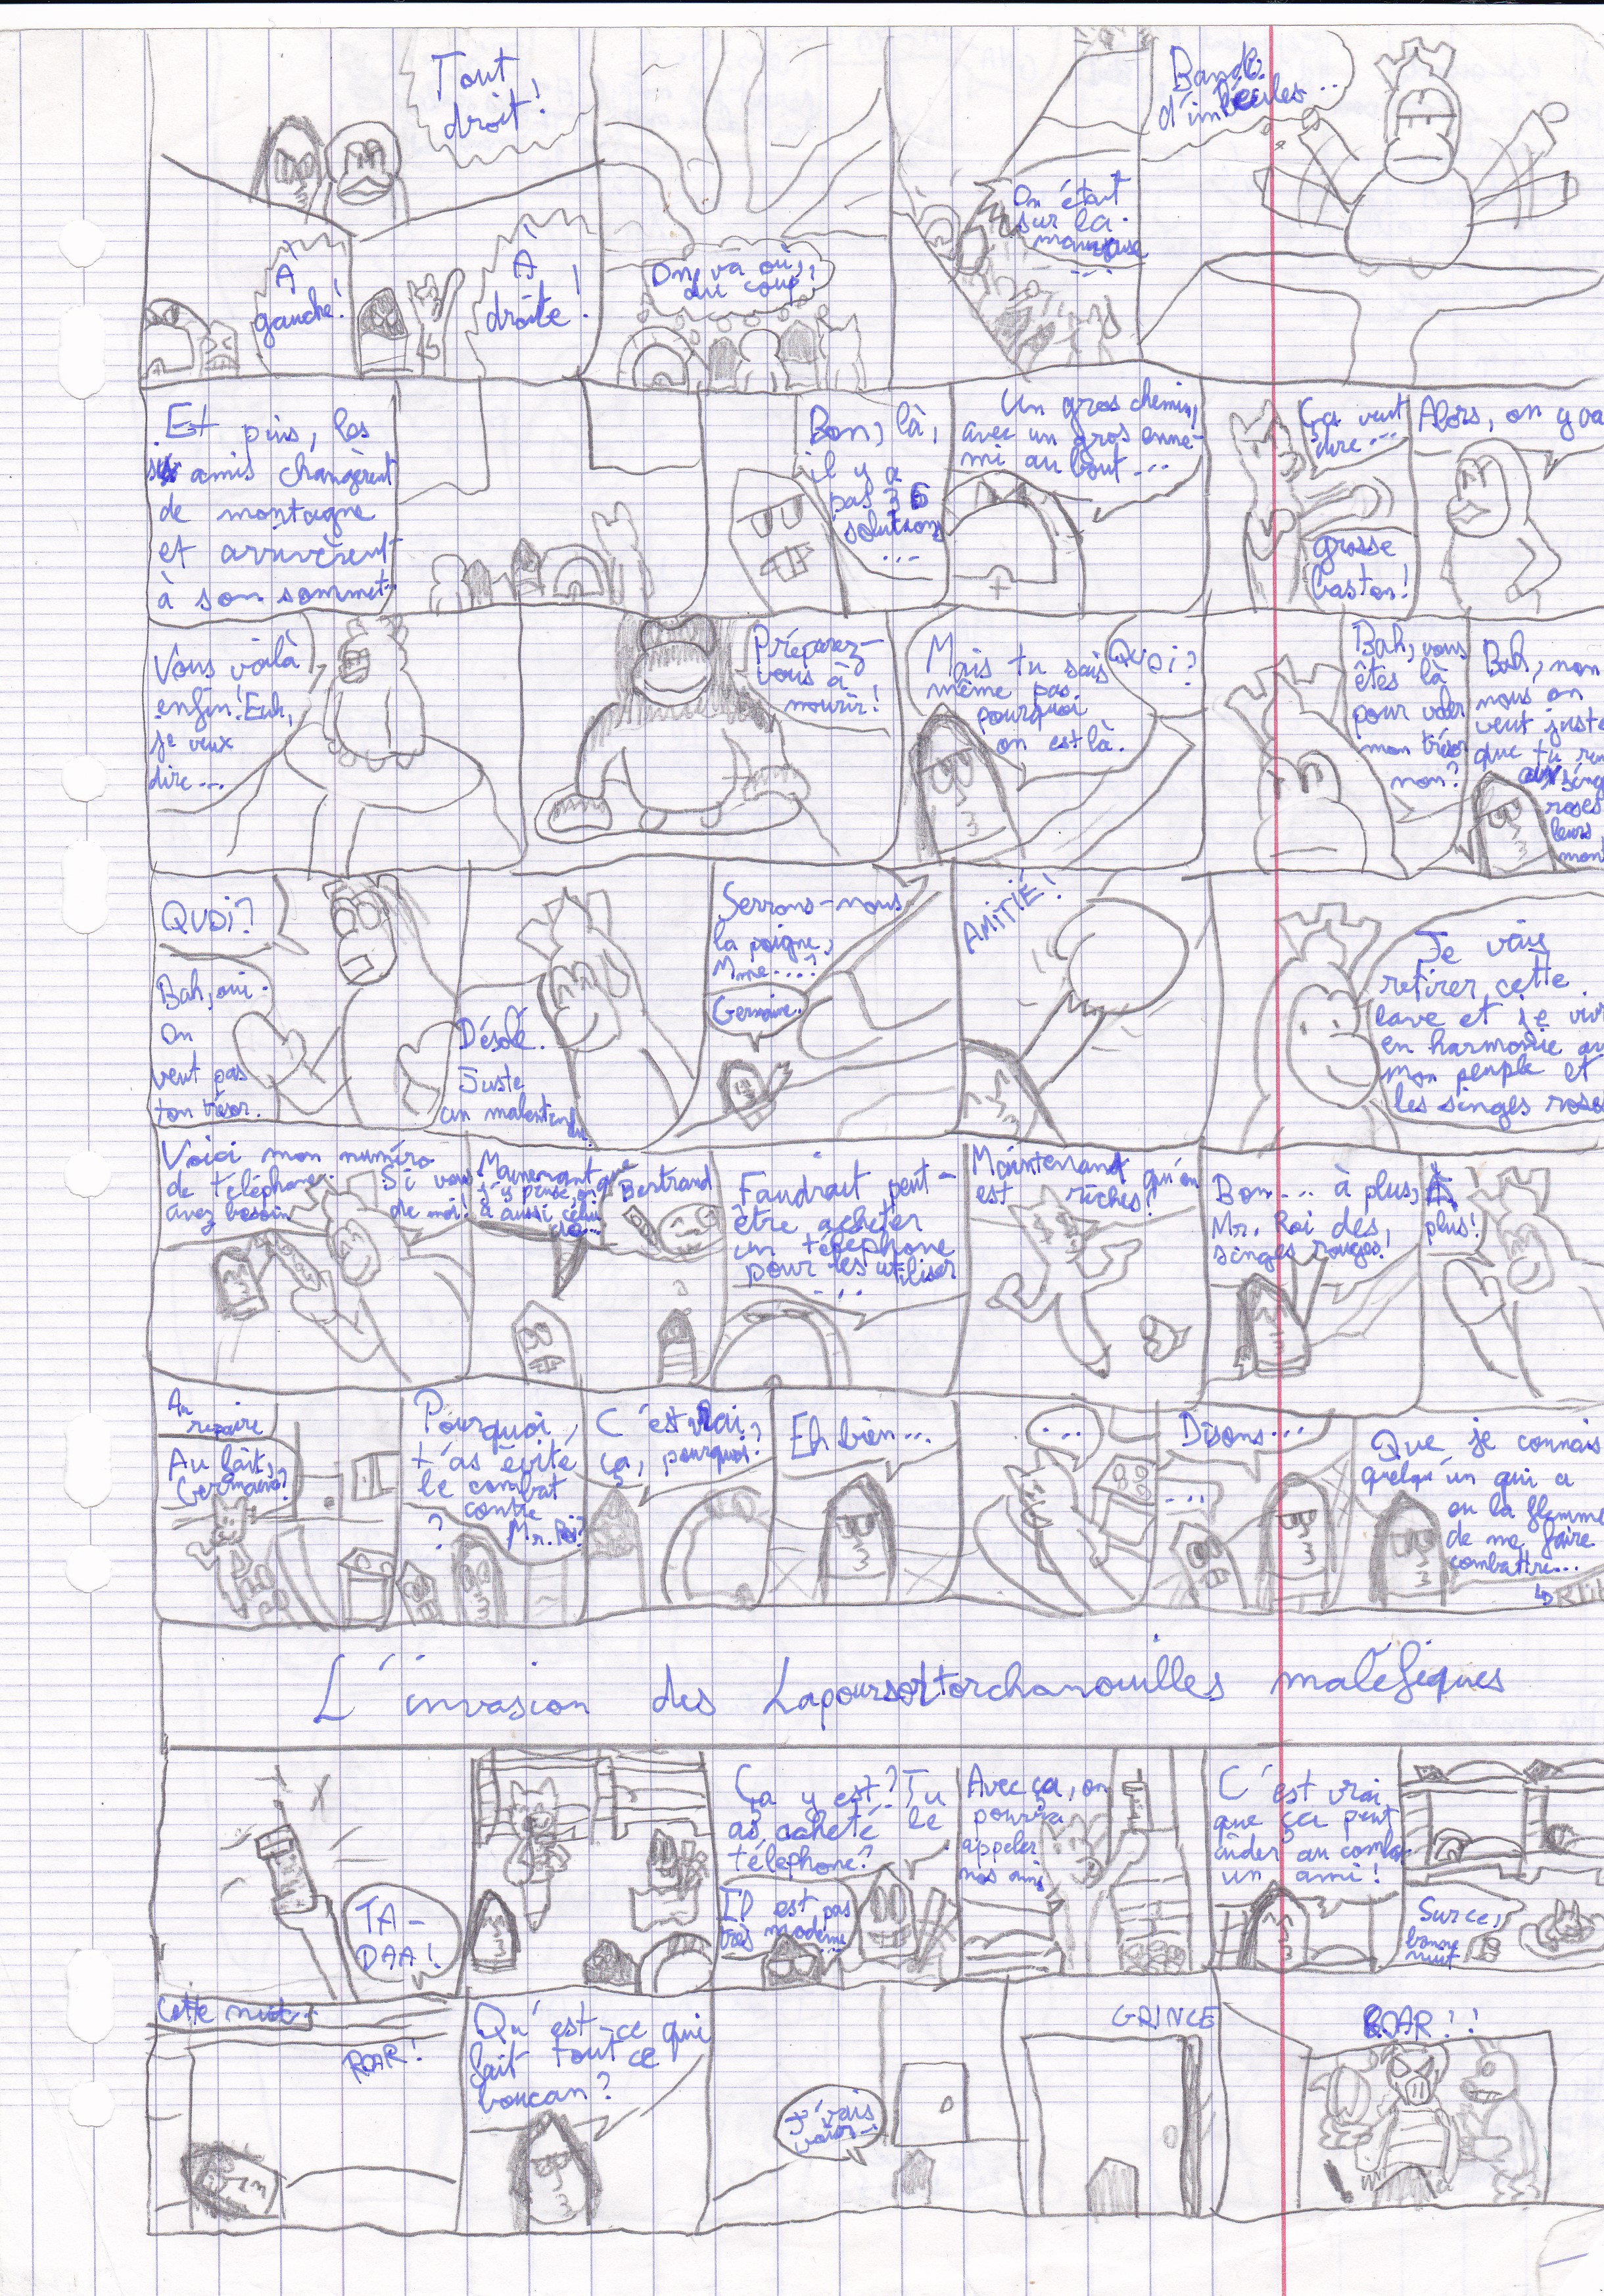 Tout
droit!
À
gauche!
À
droite!
On va où,
du coup?
On était
sur la
mauvaise
...
Bande
d'imbéciles...
Et puis, les
six amis changèrent
de montagne
et arrivèrent
à son sommet.
Bon, là,
il y a
pas 36
solutions
...
Un gros chemin,
avec un gros enne-
mi au bout...
Ça veut
dire...
grosse
baston!
Alors, on y va
Vous voilà
enfin! Euh,
je veux
dire...
Préparez-
vous à
mourir!
Mais tu sais
même pas
pourquoi
on est là.
Quoi?
Bah, vous
êtes là
pour voler
mon trésor
non?
Bah, non
nous on
veut juste
que tu ren
aux singe
roses
leurs
mont
QUOI?
Bah, oui.
On
veut pas
ton trésor.
Désolé.
Juste
un malentendu.
Serrons-nous
la poigne,
Mme...?
Germaine.
AMITIÉ!
Je vais
retirer cette
lave et je viv
en harmonie av
mon peuple et
les singes roses
Voici mon numéro
de téléphone.
Si vous
avez besoin
de moi!
Maintenant que
j'y pense, on
a aussi celui
de...
Bertrand
Faudrait peut-
être acheter
un téléphone
pour les utiliser
...
Maintenant qu'on
est riches!
Bon... à plus,
Mr. Roi des
singes rouges!
À
plus!
Au
repaire
Au fait,
Germaine?
Pourquoi
t'as évité
le combat
contre
Mr. Roi?
?
C'est vrai
ça, pourquoi?
Eh bien...
...
Disons...
...
Que je connais
quelqu'un qui a
eu la flemme
de me faire
combattre...
L'invasion des Lapoursoltorchanouilles maléfiques
TA-
DAA!
Ça y est? Tu
as acheté le
téléphone?
Il est pas
très moderne
...
Avec ça, on
pourra
appeler
nos amis
C'est vrai
que ça peut
aider au combat
un ami!
Sur ce,
bonne
nuit
Cette nuit-
ROAR!
Qu'est-ce qui
fait tout ce
boucan?
J'vais
voir...
GRINCE
ROAR!!